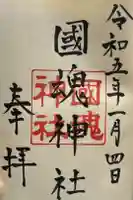 令和五年一月四日
國魂神社
奉拝
國魂
神社